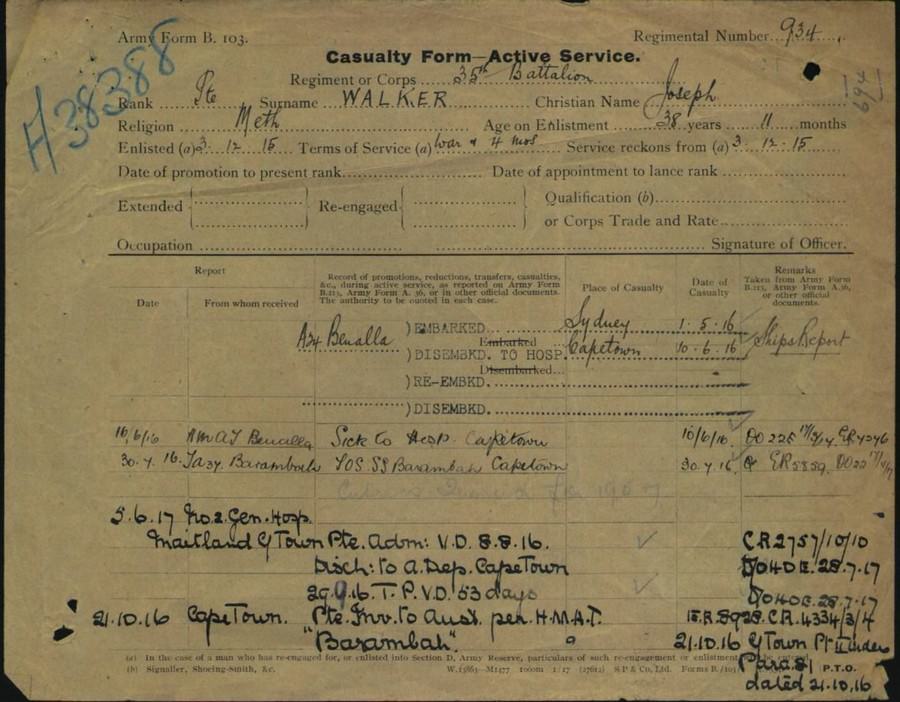 Army Form B. 103.
Regimental Number 934
Casualty Form—Active Service.
H38388
Regiment or Corps 35th Battalion
Rank Pte Surname WALKER Christian Name Joseph
Religion Meth Age on Enlistment 38 years 11 months
Enlisted (a) 3 . 12 . 15 Terms of Service (a) War & 4 mos Service reckons from (a) 3 . 12 . 15
Date of promotion to present rank Date of appointment to lance rank
Extended Re-engaged Qualification (b)
or Corps Trade and Rate
Occupation Signature of Officer.
Report
Date
From whom received
Record of promotions, reductions, transfers, casualties,
&c., during active service, as reported on Army Form
B.213, Army Form A. 36, or in other official documents.
The authority to be quoted in each case.
Place of Casualty
Date of
Casualty
Remarks
Taken from Army Form
B.213, Army Form A.36,
or other official
documents.
A24 Benalla )EMBARKED Sydney 1.5.16
Embarked
)DISEMBKD. TO HOSP. Capetown 10.6.16 Ships Report
Disembarked
)RE-EMBKD.
)DISEMBKD.
10/6/16 HMAT Benalla Sick to Hosp. Capetown 10/6/16
30.7.16 Barambah SS Barambah Capetown 30.7.16 ER5859
5.6.17 No.2.Gen.Hosp.
Maitland C/Town Pte. Adm: V.D. 8.8.16. CR2757/10/10
Disch: to A.Dep. CapeTown D04DE.28.7.17
29.9.16. T.P.V.D. 53 days D04DE.28.7.17
21.10.16 CapeTown. Pte. Inv. to Aust. per. H.M.A.T. CR.4334/3/4
"Barambah". 21.10.16 C/Town Pt II under
Para.81
dated 21.10.16
(a) In the case of a man who has re-engaged for, or enlisted into Section D, Army Reserve, particulars of such re-engagement or enlistment
(b) Signaller, Shoeing-Smith, &c. P.T.O.